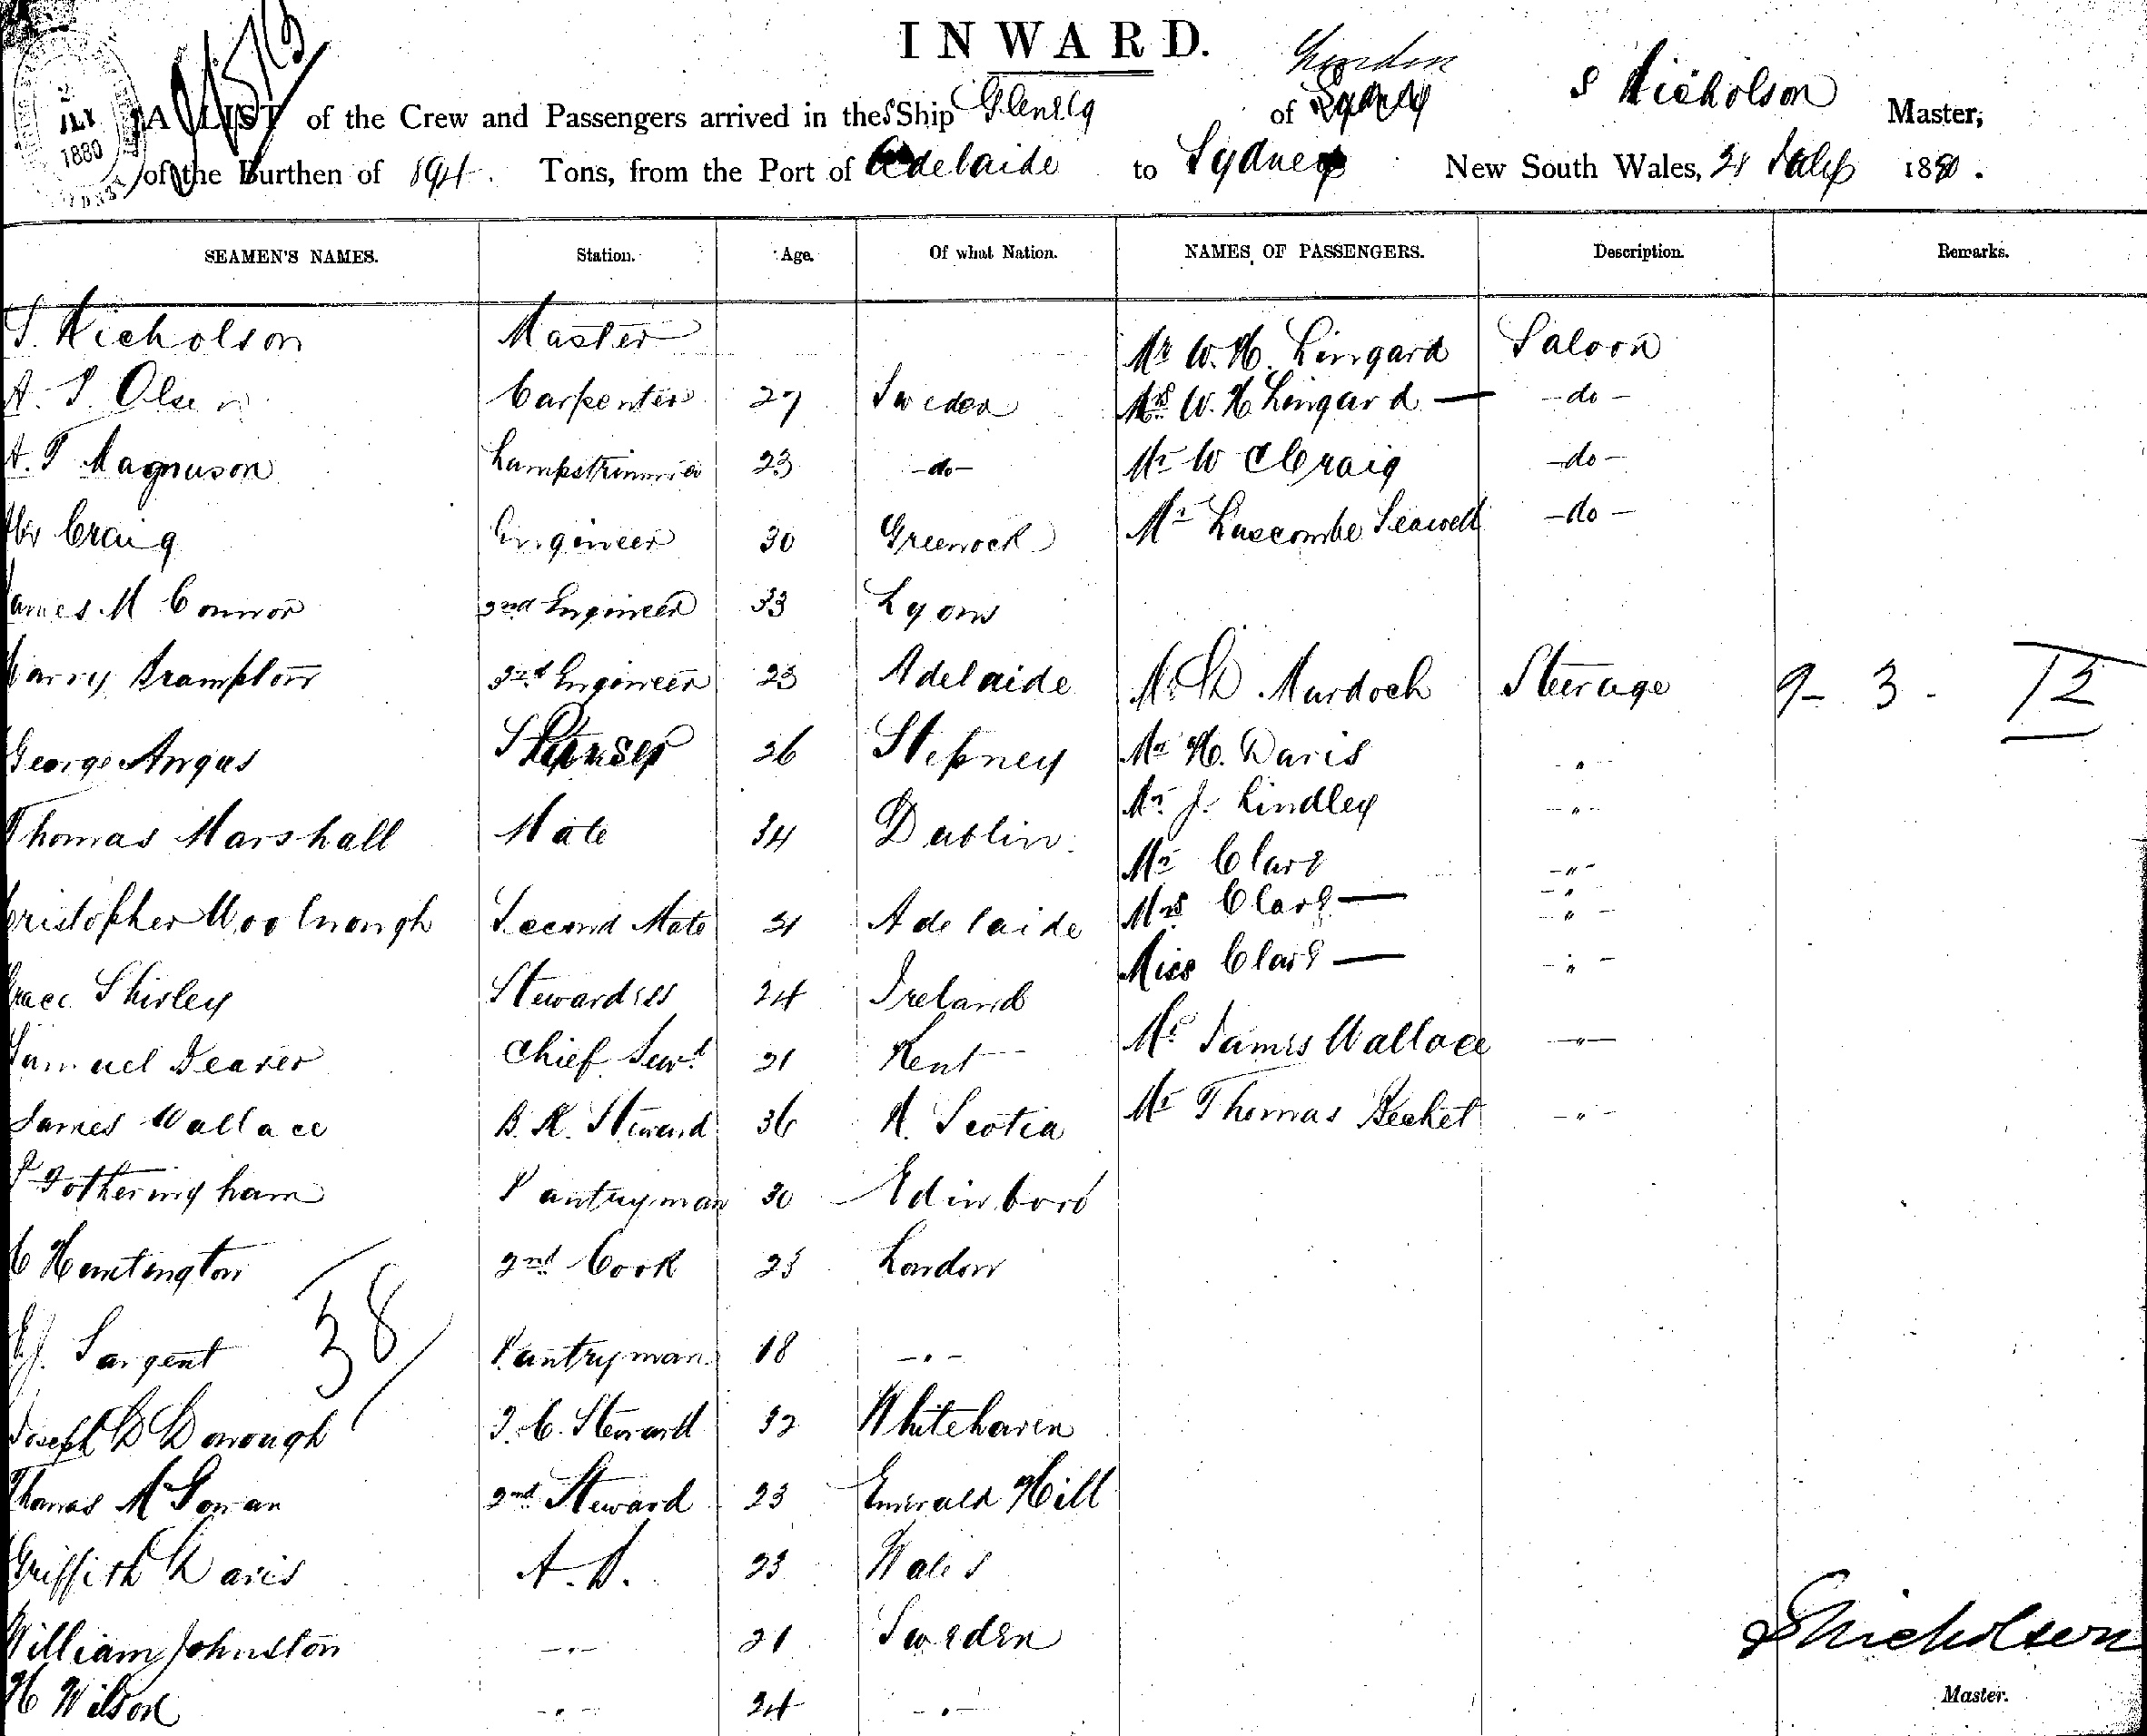 INWARD.
London
A LIST of the Crew and Passengers arrived in the S Ship Glenelg of Sydney S Nicholson Master,
of the Burthen of 894 Tons, from the Port of Adelaide to Sydney New South Wales, 21 July 1880.
2
JLY
1880
SEAMEN'S NAMES. Station. Age. Of what Nation. NAMES OF PASSENGERS. Description. Remarks.
S. Nicholson Master Mr W. H. Lingard Saloon
A. P. Olsen Carpenter 27 Sweden Mrs W. H Lingard — -do-
A. T Magnuson Lampstrimmer 23 -do- Mr W C Craig -do-
Craig Engineer 30 Greenock Mr Luscombe Searell -do-
James M Connor 2nd Engineer 33 Lyons
Harry Brampton 3rd Engineer 23 Adelaide Mr D. Murdoch Steerage 9- 3 - 12
George Angus Purser 26 Stepney Mr H. Davis - " -
Thomas Marshall Mate 34 Dublin Mr J. Lindley - " -
Mr Clark - " -
Christopher Woolnough Second Mate 21 Adelaide Mrs Clark — - " -
Grace Shirley Stewardess 24 Ireland Miss Clark — - " -
Samuel Deaver Chief Stewd 21 Kent Mr James Wallace - " -
James Wallace B. R. Steward 36 N. Scotia Mr Thomas Becket - " -
P Fotheringham Pantryman 30 Edinboro
C Huntington 2nd Cook 23 London
38
J. Sargent Pantryman 18 - " -
Joseph D Donough F. C. Steward 32 Whitehaven
Thomas McGowan 2nd Steward 23 Emerald Hill
Griffith Davis A. B. 23 Wales
William Johnston - " - 21 Sweden
H Wilson - " - 24 - " -
S Nicholson
Master.